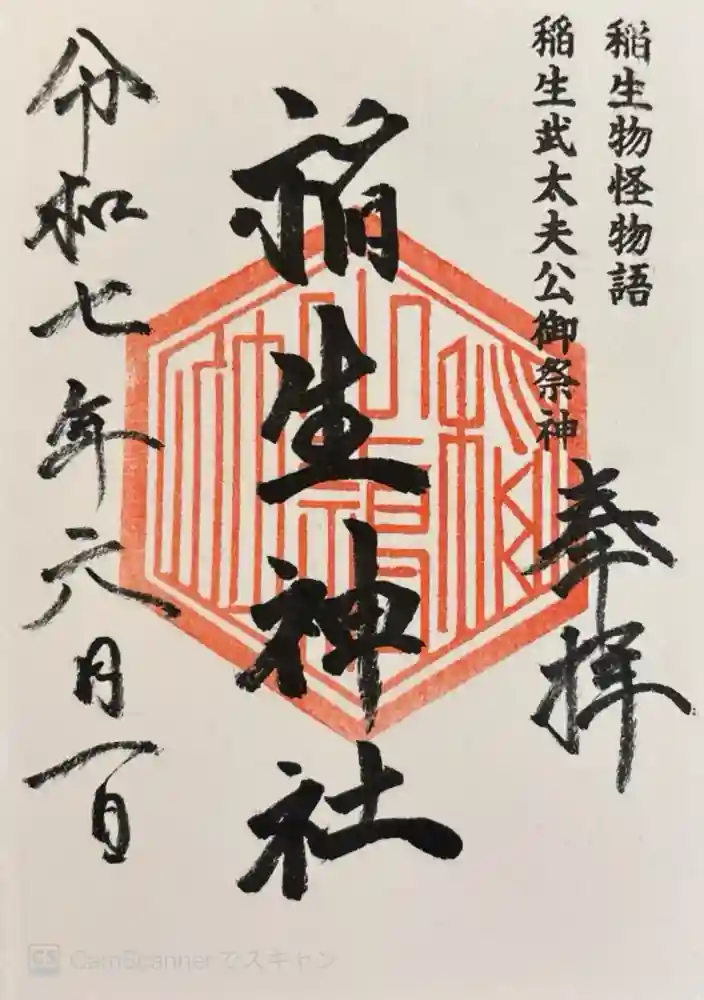 稲生物怪物語
稲生武太夫公御祭神
奉拝
稲生神社
令和七年元月一日
CS CamScanner でスキャン